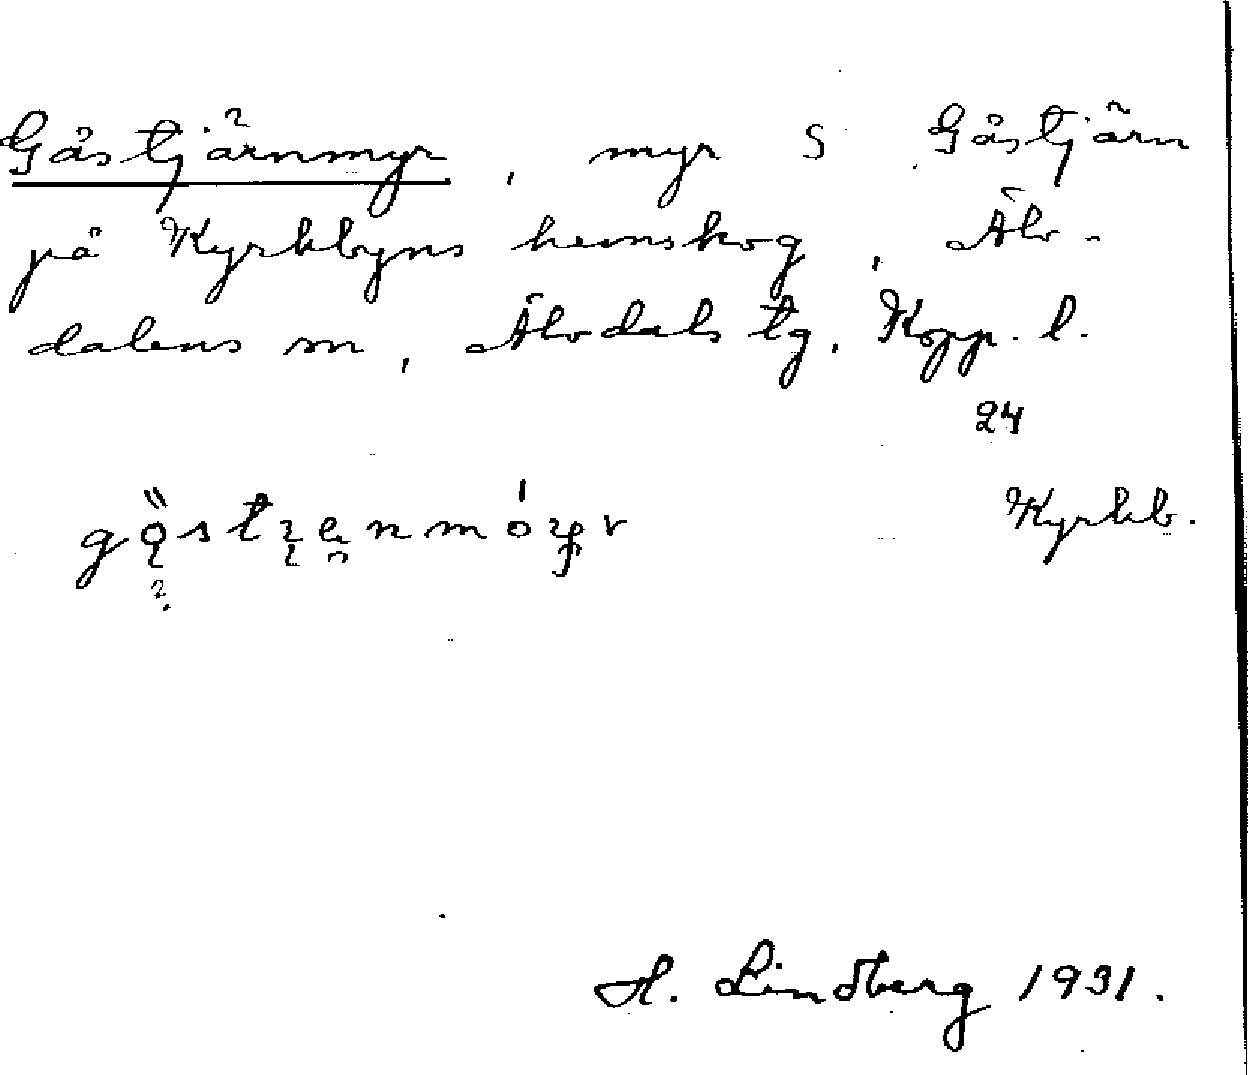 Gåstjärnmyr, myr S Gåstjärn
på Kyrkbyns hemskog, Älv-
dalens sn, Älvdals tg, Kopp. l.
24
Kyrkb.
H. Lindberg 1931.